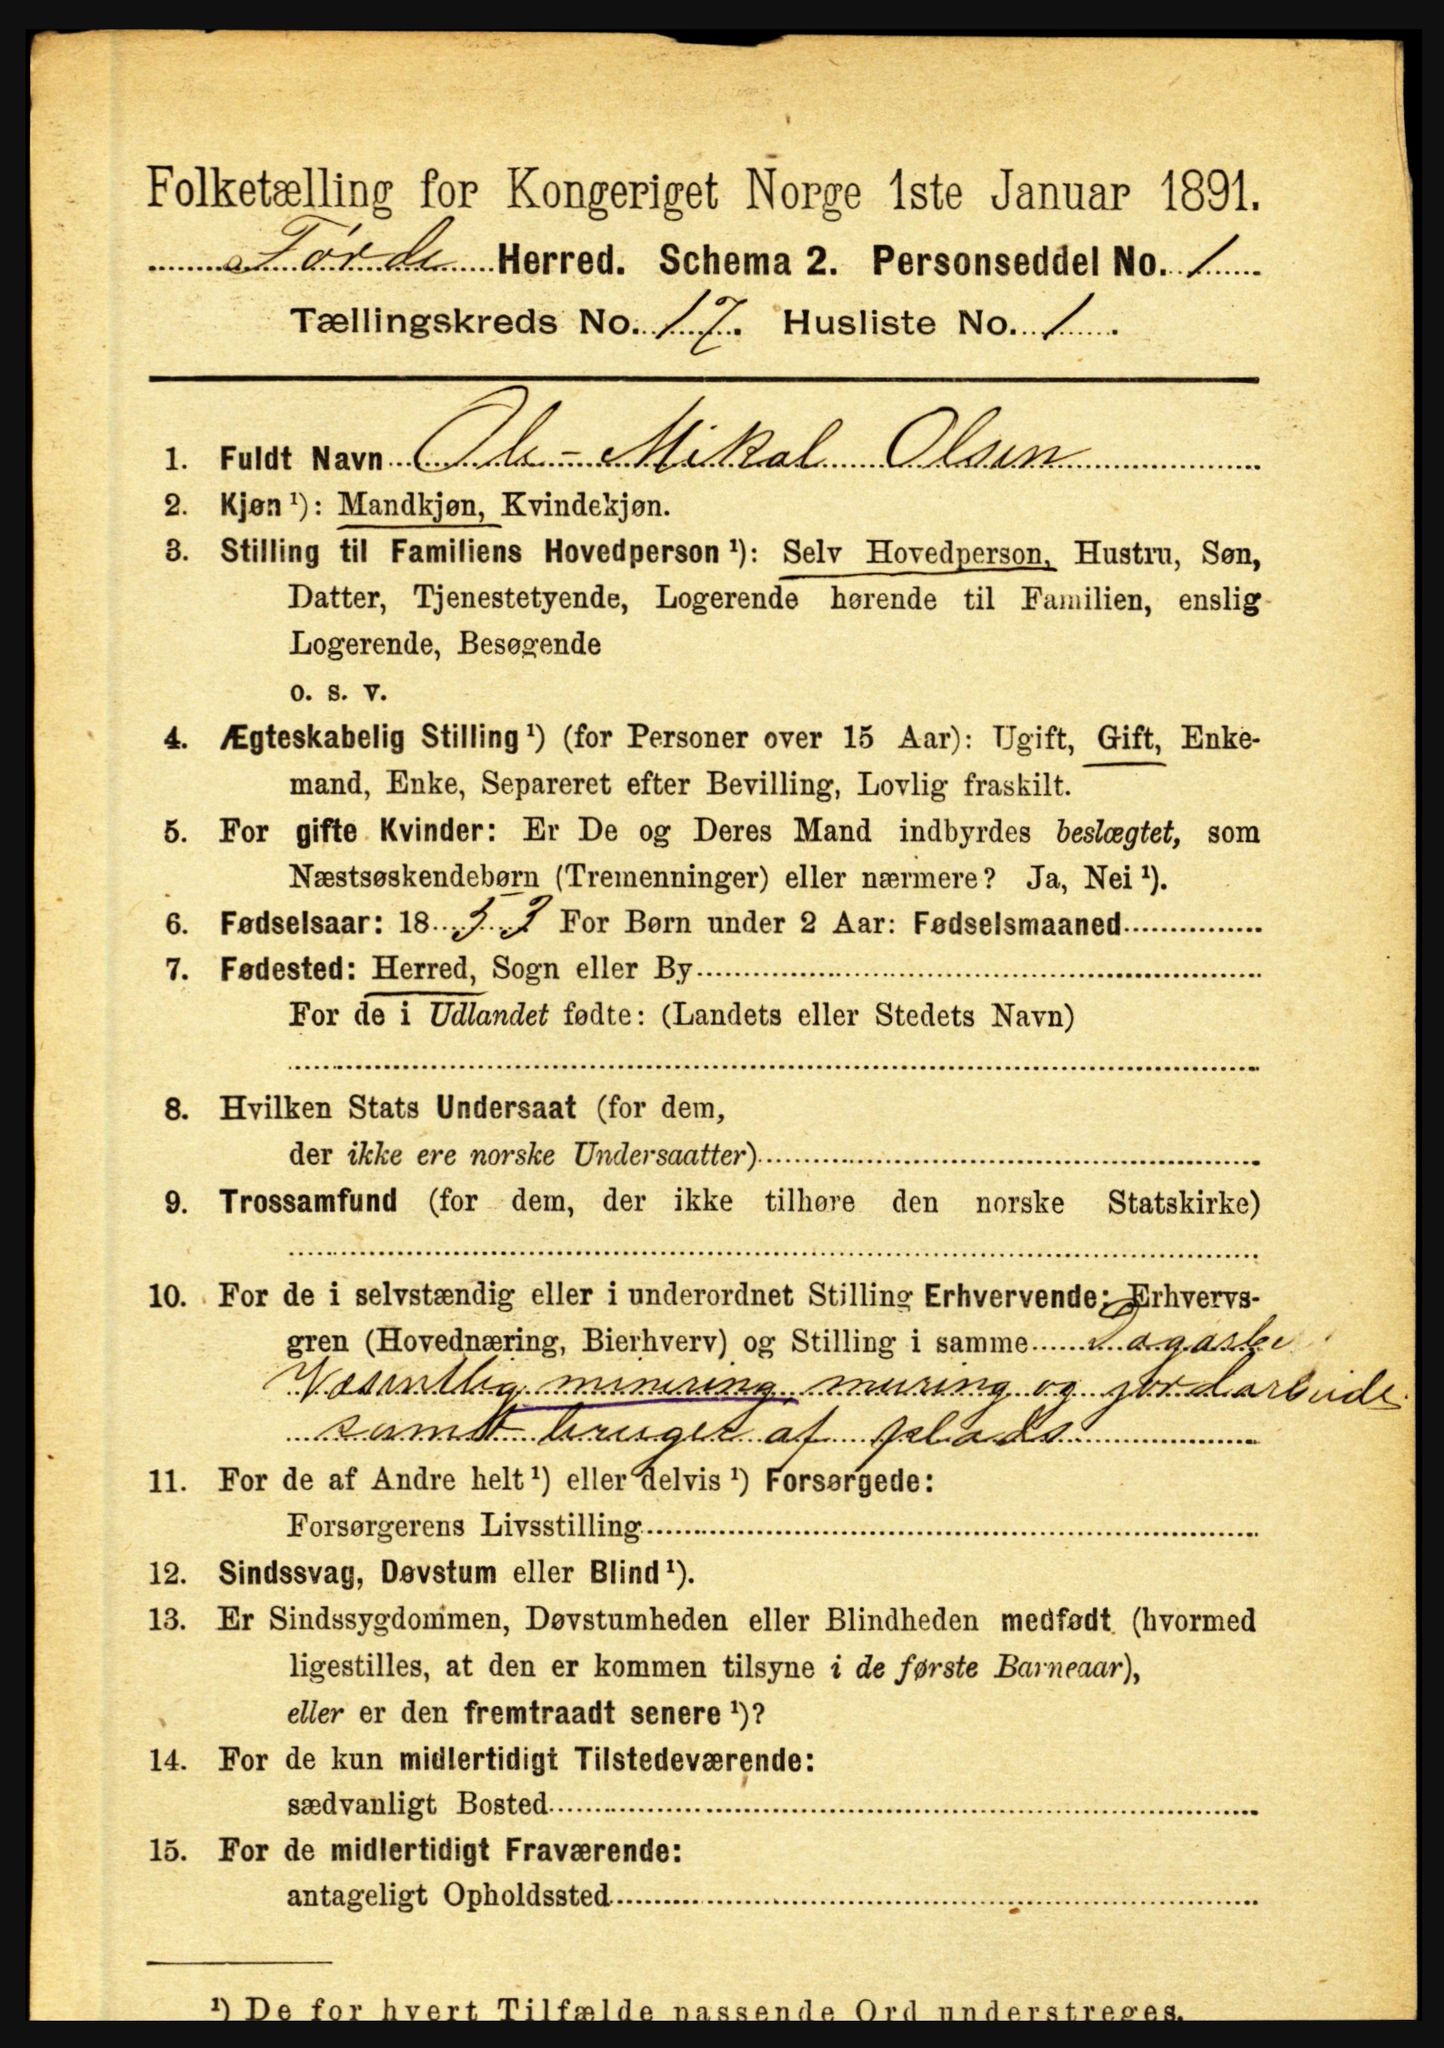 Folketælling for Kongeriget Norge 1ste Januar 1891.
Førde Herred. Schema 2. Personseddel No. 1
Tællingskreds No. 17. Husliste No. 1.
1. Fuldt Navn Ole-Mikal Olsen
2. Kjøn¹): Mandkjøn, Kvindekjøn.
3. Stilling til Familiens Hovedperson¹): Selv Hovedperson, Hustru, Søn,
Datter, Tjenestetyende, Logerende hørende til Familien, enslig
Logerende, Besøgende
o. s. v.
4. Ægteskabelig Stilling¹) (for Personer over 15 Aar): Ugift, Gift, Enke-
mand, Enke, Separeret efter Bevilling, Lovlig fraskilt.
5. For gifte Kvinder: Er De og Deres Mand indbyrdes beslægtet, som
Næstsøskendebørn (Tremenninger) eller nærmere? Ja, Nei¹).
6. Fødselsaar: 1853 For Børn under 2 Aar: Fødselsmaaned
7. Fødested: Herred, Sogn eller By
For de i Udlandet fødte: (Landets eller Stedets Navn)
8. Hvilken Stats Undersaat (for dem,
der ikke ere norske Undersaatter)
9. Trossamfund (for dem, der ikke tilhøre den norske Statskirke)
10. For de i selvstændig eller i underordnet Stilling Erhvervende: Erhvervs-
gren (Hovednæring, Bierhverv) og Stilling i samme Dagarbe
Væsentlig minering, muring og jordarbeide
samt bruger af plads
11. For de af Andre helt¹) eller delvis¹) Forsørgede:
Forsørgerens Livsstilling
12. Sindssvag, Døvstum eller Blind¹).
13. Er Sindssygdommen, Døvstumheden eller Blindheden medfødt (hvormed
ligestilles, at den er kommen tilsyne i de første Barneaar),
eller er den fremtraadt senere¹)?
14. For de kun midlertidigt Tilstedeværende:
sædvanligt Bosted
15. For de midlertidigt Fraværende:
antageligt Opholdssted
¹) De for hvert Tilfælde passende Ord understreges.